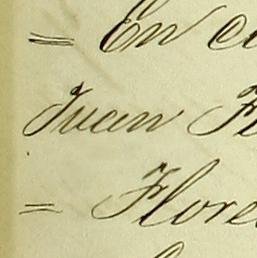 = En
Juan
= Flore